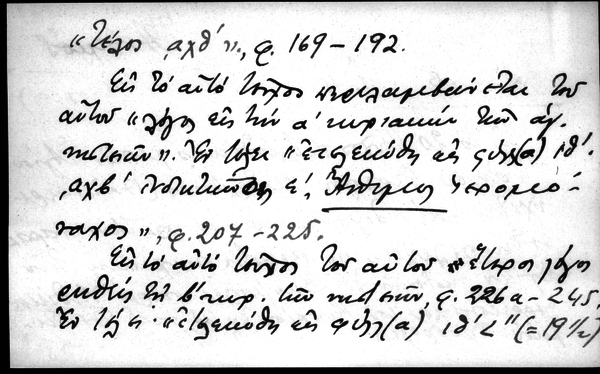 « Τέλος ͵αχθ΄ », φ. 169 – 192.
Εἰς τὸ αὐτὸ τεῦχος περιλαμβάνεται τοῦ
αὐτοῦ « λόγος εἰς τὴν α΄ κυριακὴν τῶν ἁγ.
νηστειῶν ». Ἐν τέλει « ἐτελειώθη εἰς φύλλ(α) ιθ΄.
͵αχβ΄ ἰνδικτιῶνος ε΄, Ἄνθιμος ἱερομό-
ναχος », φ. 207 – 225.
Εἰς τὸ αὐτὸ τεῦχος τοῦ αὐτοῦ « ἕτερος λόγος
ῥηθεὶς τῇ β΄ κυρ. τῶν νηστειῶν, φ. 226α – 245,
Ἐν τέλει · « ἐτελειώθη εἰς φύλλ(α) ιθ΄ < " (= 19 1/2)